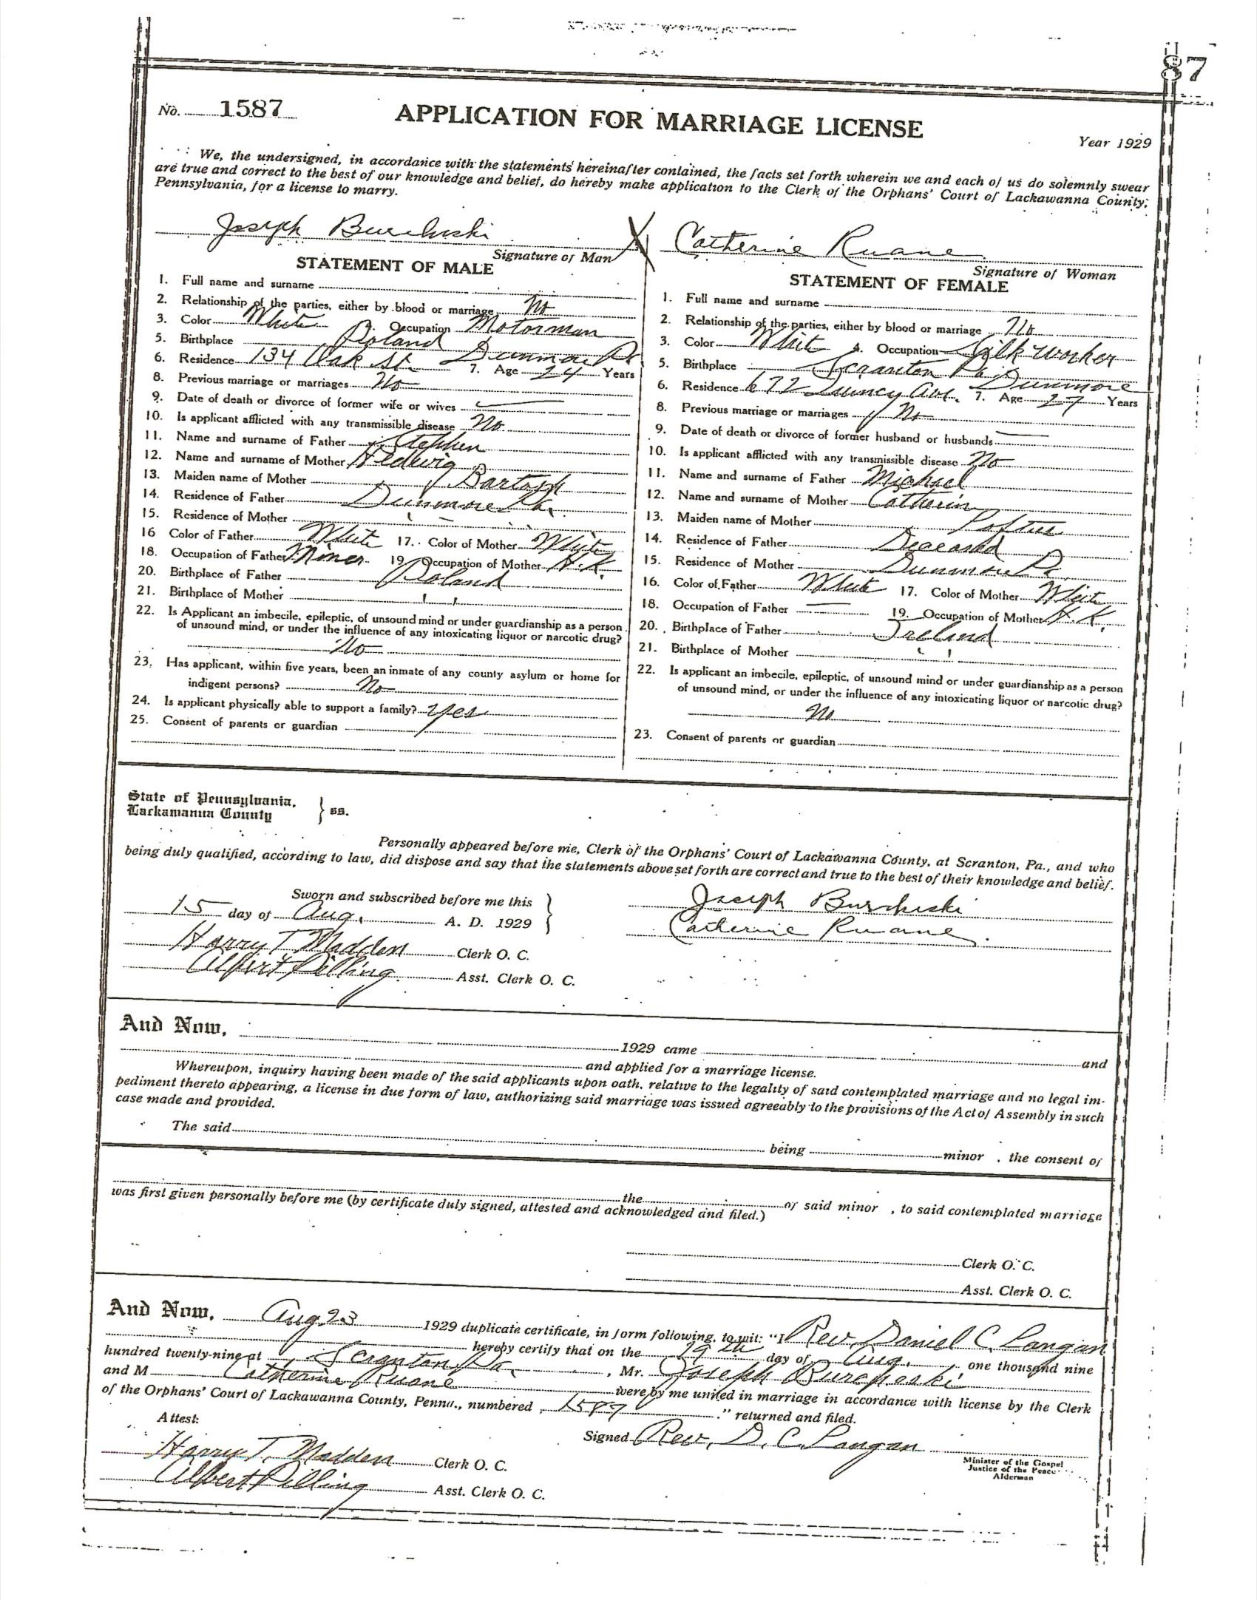 87
No. 1587
APPLICATION FOR MARRIAGE LICENSE
Year 1929
We, the undersigned, in accordance with the statements hereinafter contained, the facts set forth wherein we and each of us do solemnly swear
are true and correct to the best of our knowledge and belief, do hereby make application to the Clerk of the Orphans' Court of Lackawanna County,
Pennsylvania, for a license to marry.
Joseph X Catherine Ruane
Signature of Man
Signature of Woman
STATEMENT OF MALE
1. Full name and surname
2. Relationship of the parties, either by blood or marriage No
3. Color White Occupation Motorman
5. Birthplace Poland
6. Residence 134 Oak St. Dunmore Pa 7. Age 24 Years
8. Previous marriage or marriages No
9. Date of death or divorce of former wife or wives
10. Is applicant afflicted with any transmissible disease No
11. Name and surname of Father Stephen
12. Name and surname of Mother Hedwig
13. Maiden name of Mother
14. Residence of Father Dunmore Pa.
15. Residence of Mother " "
16 Color of Father White 17. Color of Mother White
18. Occupation of Father Miner 19 Occupation of Mother H.K.
20. Birthplace of Father Poland
21. Birthplace of Mother " "
22. Is Applicant an imbecile, epileptic, of unsound mind or under guardianship as a person
of unsound mind, or under the influence of any intoxicating liquor or narcotic drug?
No
23. Has applicant, within five years, been an inmate of any county asylum or home for
indigent persons? No
24. Is applicant physically able to support a family? Yes
25. Consent of parents or guardian
STATEMENT OF FEMALE
1. Full name and surname
2. Relationship of the parties, either by blood or marriage No
3. Color White 4. Occupation Silk Worker
5. Birthplace Scranton Pa
6. Residence 672 Quincy Ave. Dunmore 7. Age 27 Years
8. Previous marriage or marriages No
9. Date of death or divorce of former husband or husbands
10. Is applicant afflicted with any transmissible disease No
11. Name and surname of Father Michael
12. Name and surname of Mother Catherin
13. Maiden name of Mother
14. Residence of Father Deceased
15. Residence of Mother Dunmore Pa
16. Color of Father White 17. Color of Mother White
18. Occupation of Father 19. Occupation of Mother H.K.
20. Birthplace of Father Ireland
21. Birthplace of Mother " "
22. Is applicant an imbecile, epileptic, of unsound mind or under guardianship as a person
of unsound mind, or under the influence of any intoxicating liquor or narcotic drug?
No
23. Consent of parents or guardian
State of Pennsylvania,
Lackawanna County } ss.
Personally appeared before me, Clerk of the Orphans' Court of Lackawanna County, at Scranton, Pa., and who
being duly qualified, according to law, did dispose and say that the statements above set forth are correct and true to the best of their knowledge and belief.
Sworn and subscribed before me this
15 day of Aug. A. D. 1929
Joseph
Catherine Ruane.
Harry T. Madden Clerk O. C.
Albert Pilling Asst. Clerk O. C.
And Now,
1929 came and
and applied for a marriage license.
Whereupon, inquiry having been made of the said applicants upon oath, relative to the legality of said contemplated marriage and no legal im-
pediment thereto appearing, a license in due form of law, authorizing said marriage was issued agreeably to the provisions of the Act of Assembly in such
case made and provided.
The said being minor , the consent of
the of said minor , to said contemplated marriage
was first given personally before me (by certificate duly signed, attested and acknowledged and filed.)
Clerk O. C.
Asst. Clerk O. C.
And Now, Aug 23 1929 duplicate certificate, in form following, to wit: "I Rev. Daniel C. Langan
hereby certify that on the 19th day of Aug. one thousand nine
hundred twenty-nine at Scranton Pa. , Mr. Joseph
and M Catherine Ruane were by me united in marriage in accordance with license by the Clerk
of the Orphans' Court of Lackawanna County, Penna., numbered 1587 ." returned and filed.
Attest:
Signed Rev. D. C. Langan
Minister of the Gospel
Justice of the Peace
Alderman
Harry T. Madden Clerk O. C.
Albert Pilling Asst. Clerk O. C.